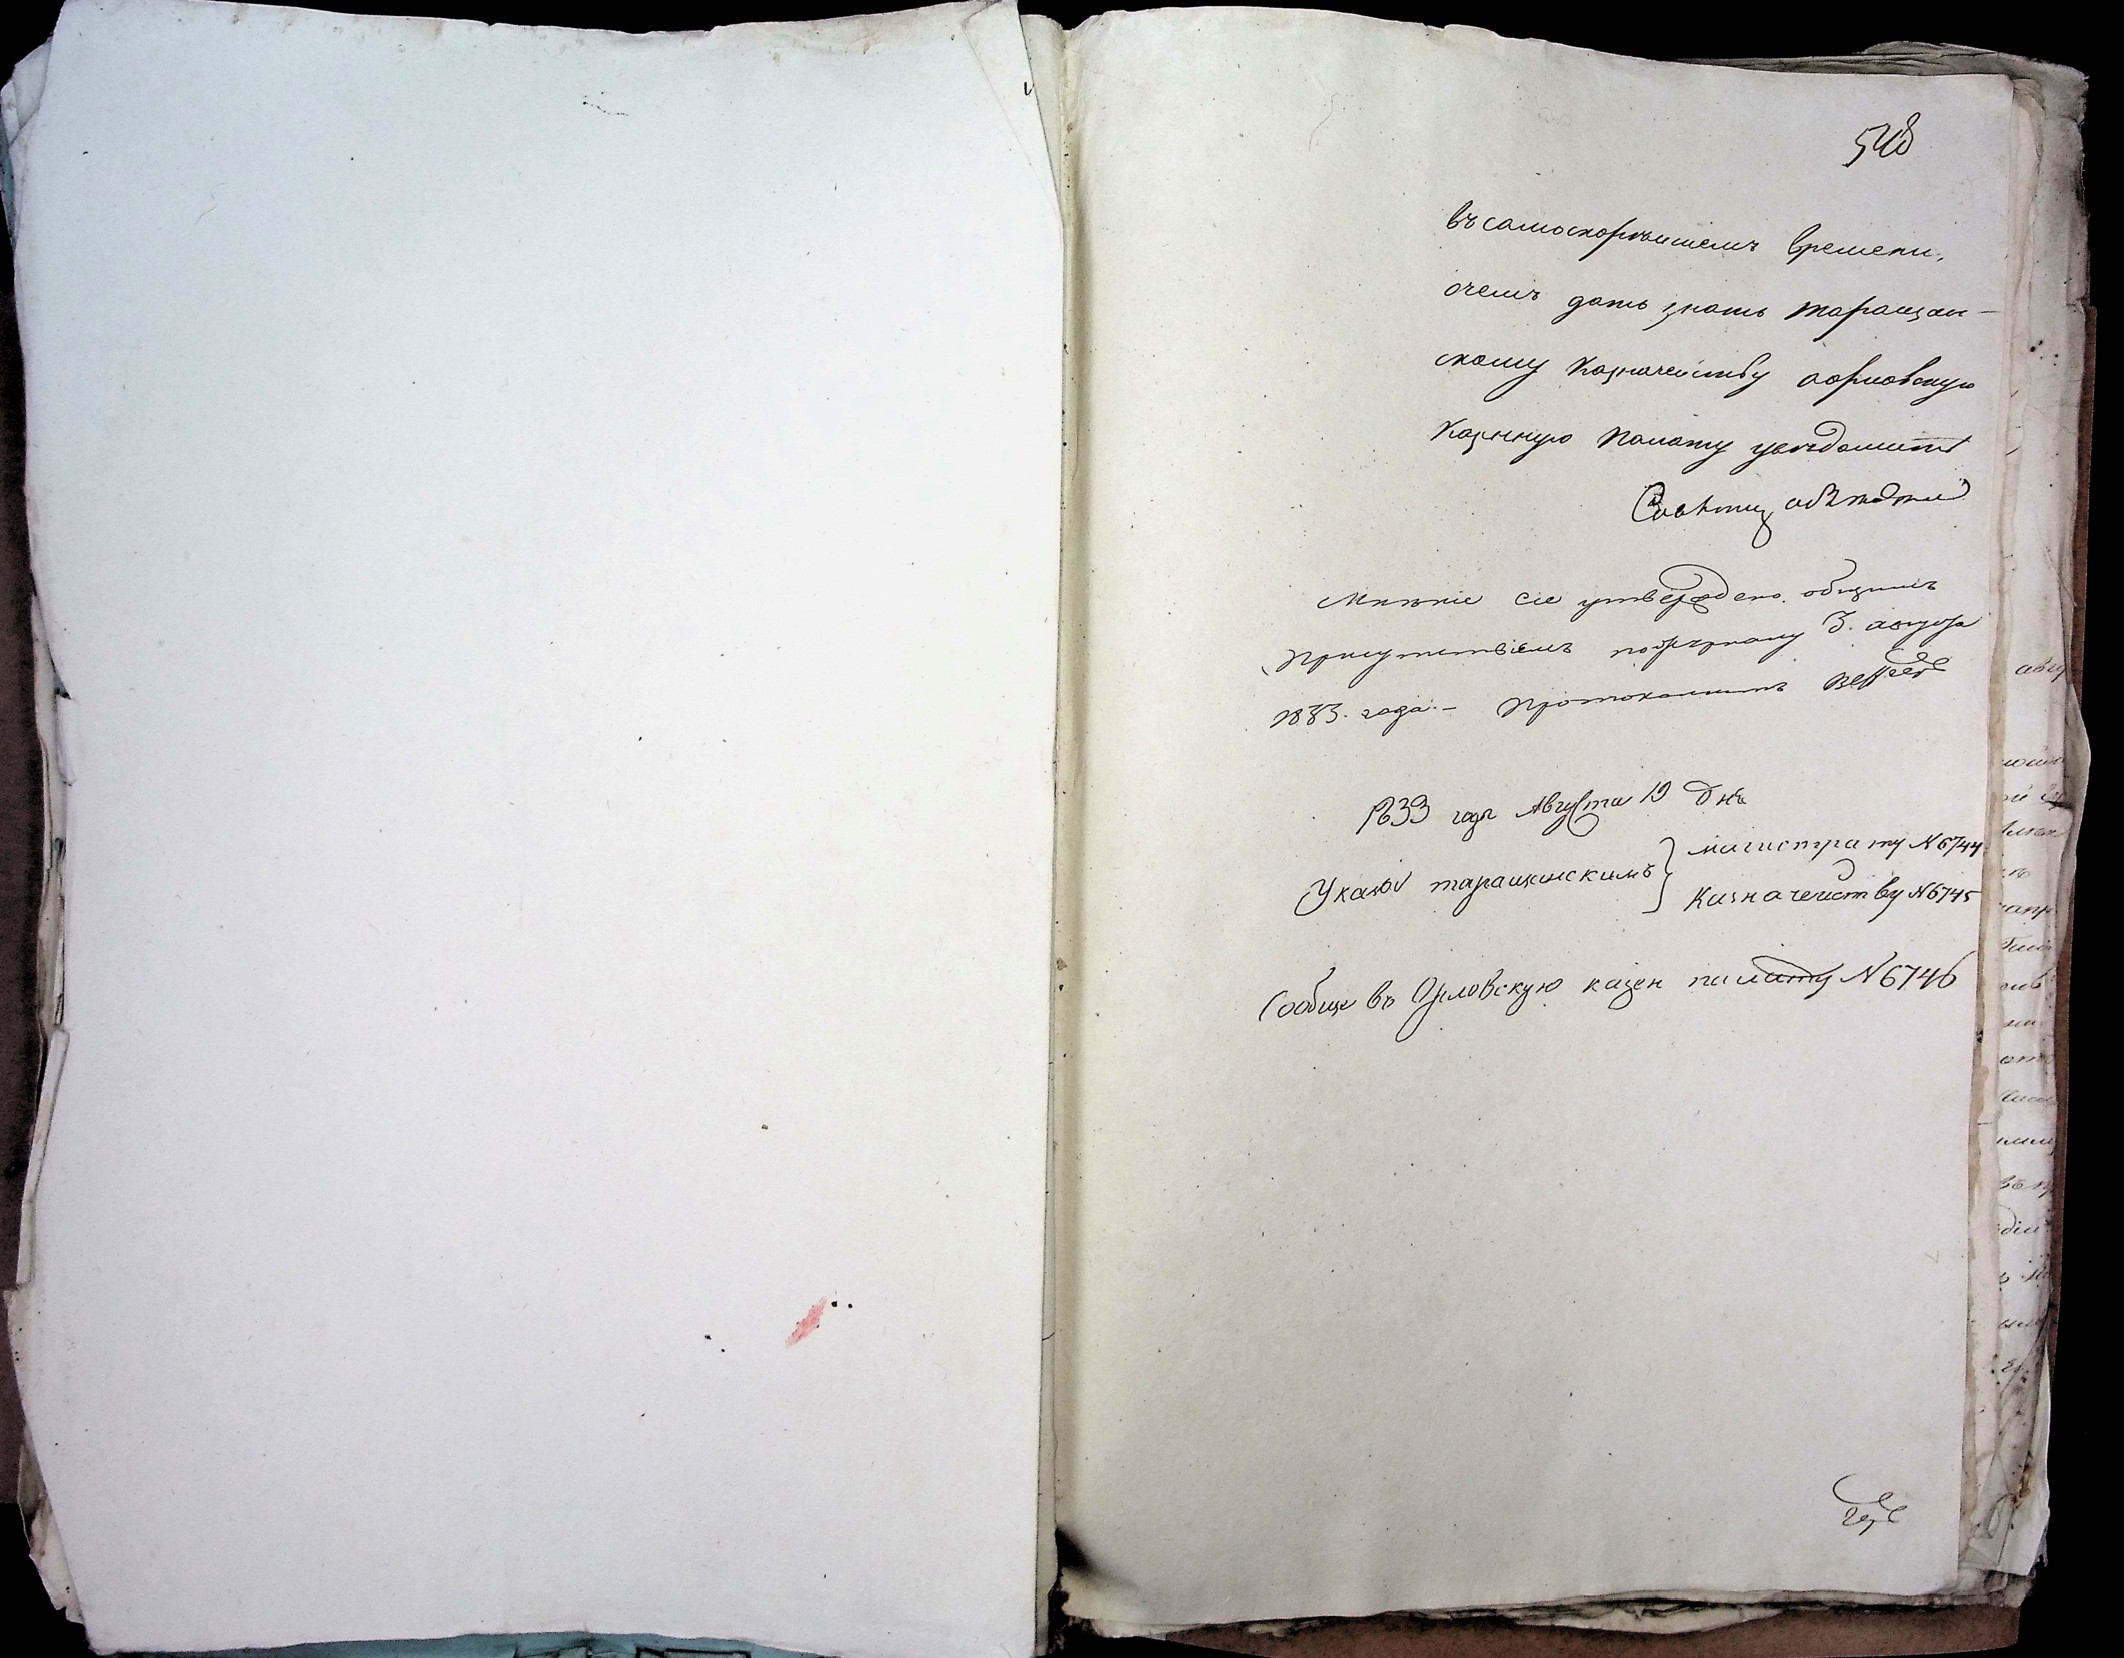 548
въ самоскорѣйшемъ времени,
о чемъ дать знать таращан-
скому Казначейству а орловскую
Казенную Палату увѣдомить
Совѣтникъ
Мнѣніе сіе утверждено общимъ
Присутствіемъ по журналу 3. августа
1833. года.- Протоколистъ
1833 года Августа 19 дня
Указы таращанскимъ } магистрату N 6744
Казначейству N 6745
Сообще въ Орловскую казен палату N 6746